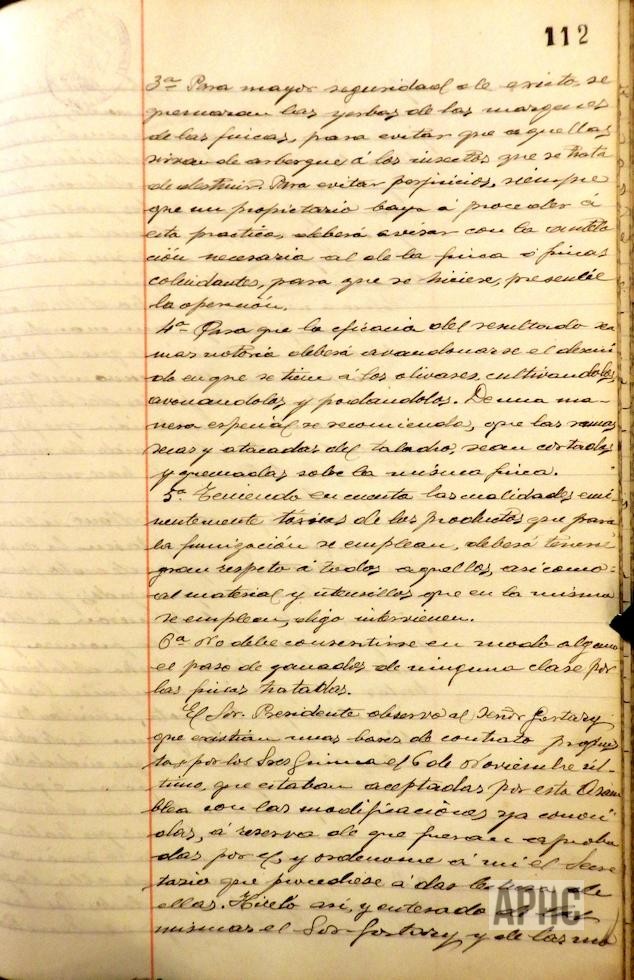 112
3ª Para mayor seguridad de exito, se
quemaran las yerbas de las margenes
de las fincas, para evitar que aquellas
sirvan de arbergue á los insectos que se trata
de destruir. Para evitar perjuicios, siempre
que un propietario baya á proceder á
esta practica, deberá avisar con la antela
ción necesaria al de la finca ó fincas
colindantes, para que se hiciere, presencie
la operación.
4ª Para que la eficacia del resultado sea
mas notoria deberá avandonarse el descui
do en que se tiene á los olivares, cultivandolos,
avonandolos y podandolos. De una ma-
nera especial se recomienda, que las ramas
secas y atacadas del taladro, sean cortadas
y quemadas sobre la misma finca.
5ª Teniendo en cuenta las cualidades emi
nentemente toxicas de los productos que para
la fumigación se emplean, deberá tenerse
gran respeto á todos aquellos, asi como
al material y utensillos que en la misma
se emplean, digo intervienen.
6ª No debe consentirse en modo alguno
el paso de ganados de ninguna clase por
las fincas tratables.
El Sor. Presidente observa al Señor Gortary
que existian unas bases de contrato propues
tas por los Sres el 6 de Noviembre úl-
timo, que estaban aceptadas por esta Asam
blea con las modificaciónes ya conoci
das, á reserva de que fueran aproba
das por el, y ordenome á mi el Secre
tario que procediese á dar lectura de
ellas. Hicelo así, y enterado de las
mismas el Sor Gortary y de las mo
APHC